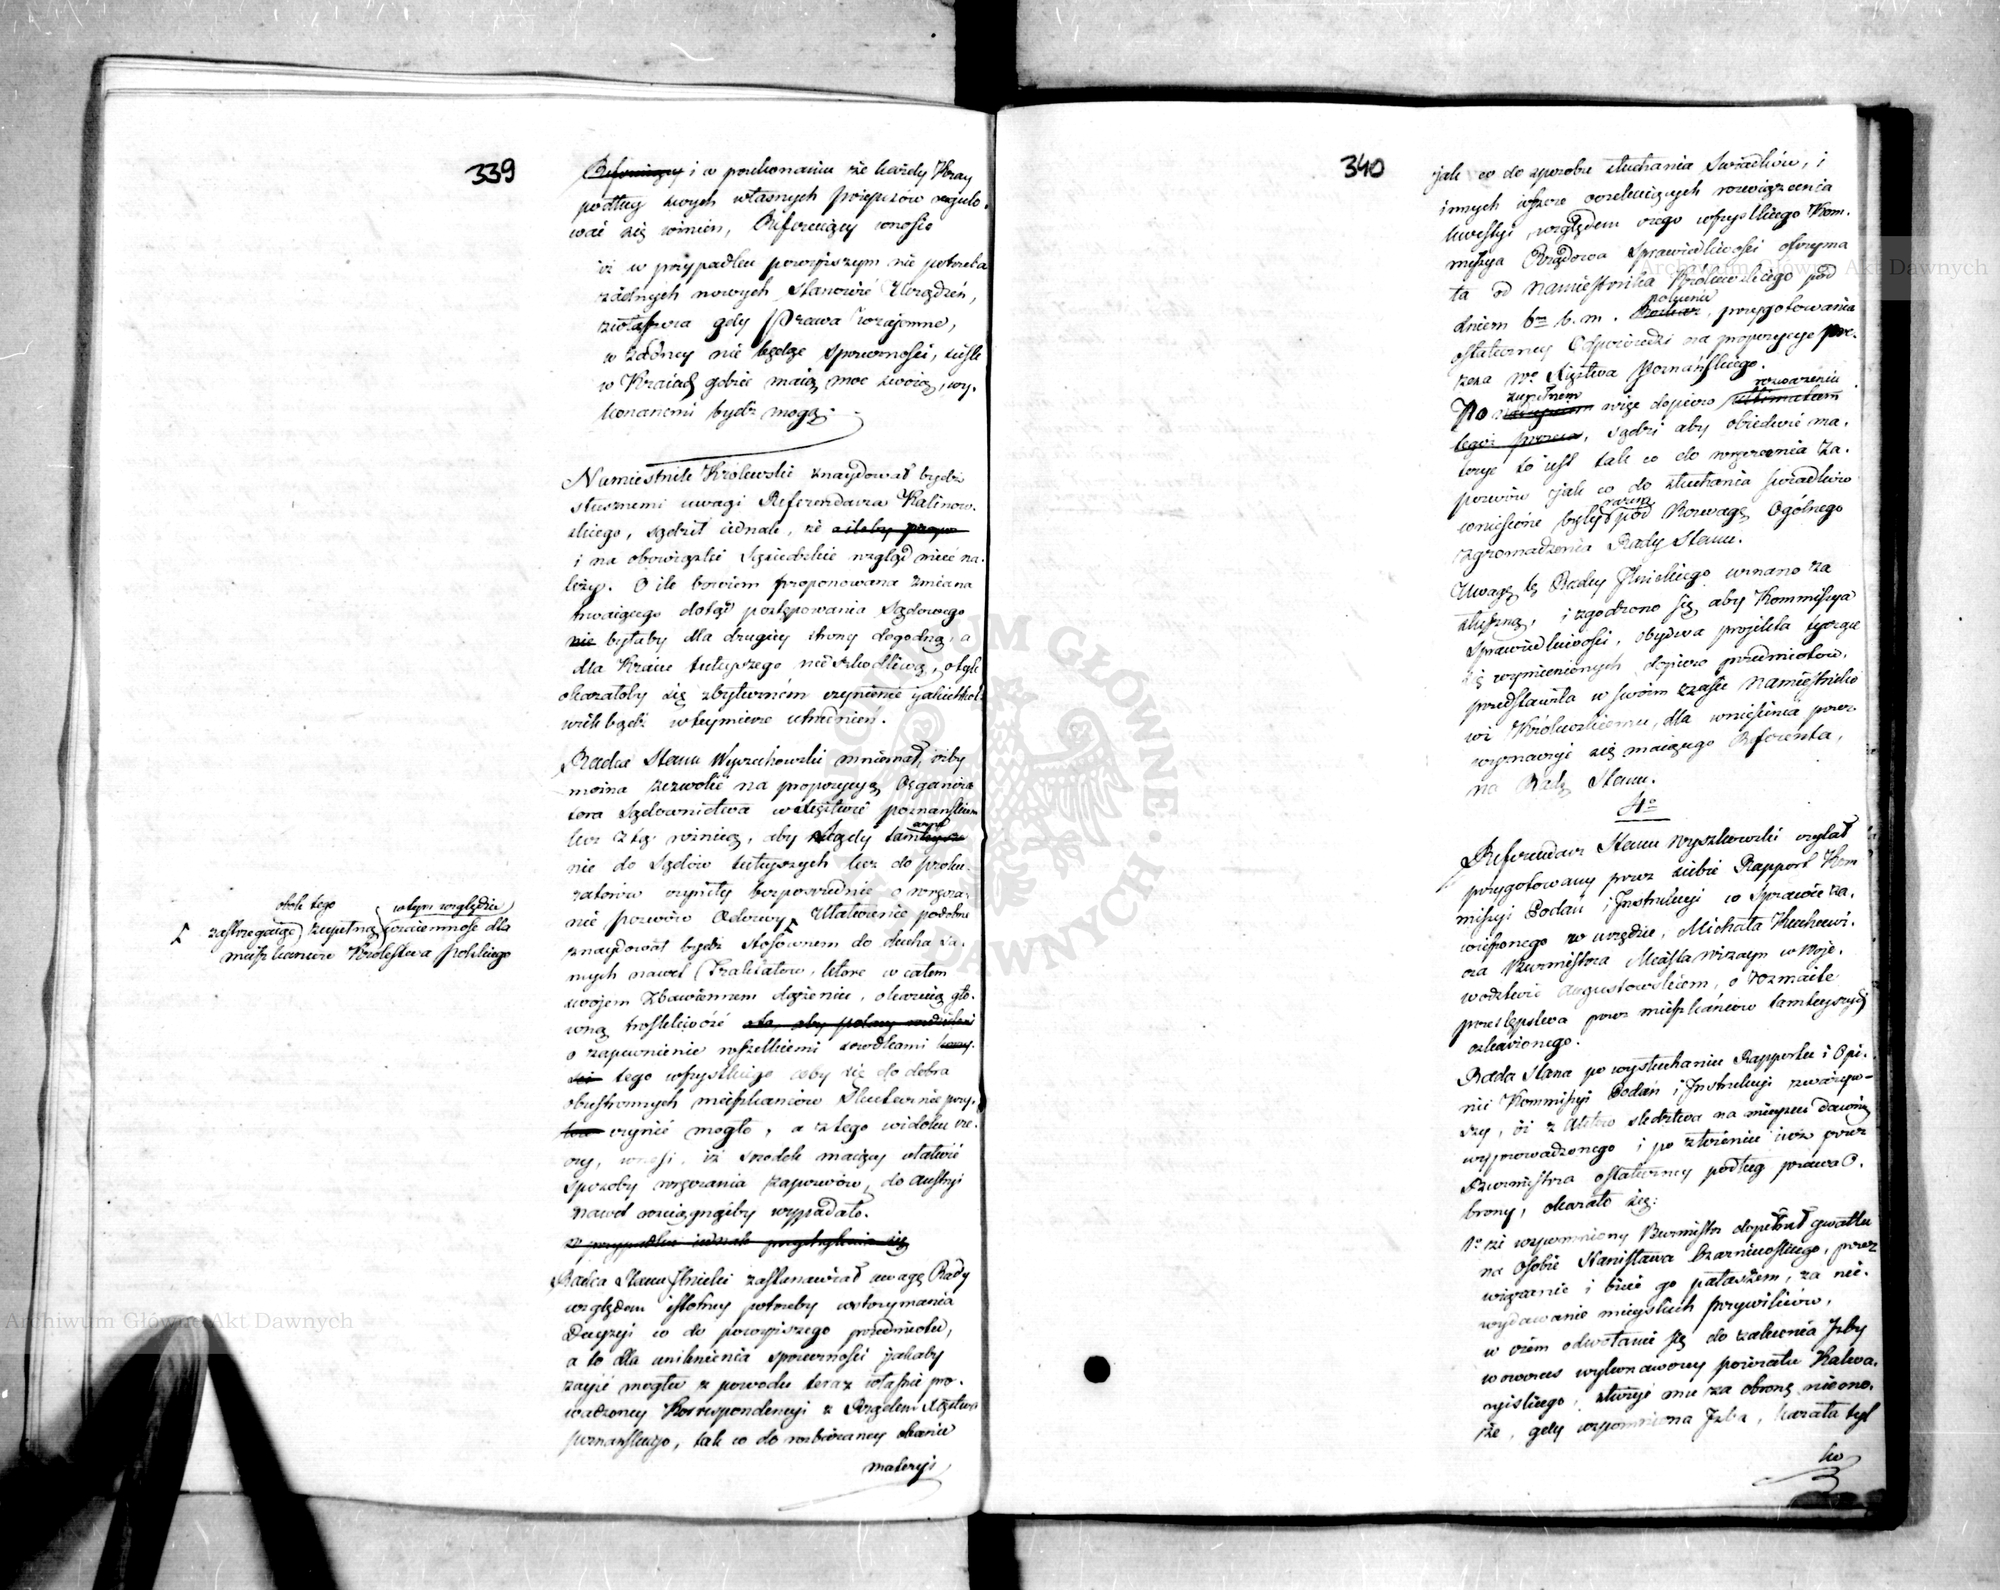 339
i w przekonaniu że każdy Kray
podług swych własnych przepisów regulo-
wać się winien, Referuiący wnosił
iż w przypadku powyższym nie potrzeba
żadnych nowych Stanowić Urządzeń,
zwłaszcza gdy Prawa wzajemne,
w żadney nie będąc sprzeczności, ściśle
w Kraiach gdzie maią moc swoią, wy-
konanemi bydź mogą.
Namiestnik Królewski znaydował bydź
słusznemi uwagi Referendarza Kalinow-
skiego, sądził iednak, że
i na obowiązki Sąsiedzkie wzgląd mieć na-
leży. O ile bowiem proponowana zmiana
trwaiącego dotąd postępowania Sądowego
nie byłaby dla drugiey strony dogodną, a
dla Kraiu tuteyszego nie szkodliwą, o tyle
okazałoby się zbytecznem czynienie jakichkol-
wiek bądź w teymierze utrudnień.
Radca Stanu Wyczechowski mniemał, iżby
można zezwolić na propozycyą Organiza
tora Sądownictwa w Xięztwie poznańskiem
lecz z tą różnicą, aby Sądy tam
nie do Sądów tuteyszych lecz do proku-
ratorów czyniły bezpośrednie o wręcza-
nie pozwów Odezwy. Ułatwienie podobne
obok tego w tym względzie
zastrzegaiąc zupełną wzaiemność dla
mieszkańców Królestwa Polskiego
znaydował bydź stosownem do ducha sa-
mych nawet Traktatów, które w całem
swojem zbawiennem dążeniu, okazuią głó-
wną troskliwość
o zapewnienie wszelkiemi środkami
tego wszystkiego coby się do dobra
obustronnych mieszkańców skutecznie przy-
czynić mogło, a z tego widoku rze-
czy, wnosi, iż środek maiący ułatwić
sposoby wręczania zapozwów, do Austryi
nawet rozciągnąćby wypadało.
Radca Stanu Jźnicki zastanawiał uwagę Rady
względem istotney potrzeby wstrzymania
Decyzyi co do powyższego przedmiotu,
a to dla uniknienia sprzeczności jakaby
zayść mogła z powodu teraz właśnie pro-
wadzoney Korrespondencyi z Rządem Xięztwa
poznańskiego, tak co do rozbieraney obecnie
materyi
340
jak co do sposobu słuchania Świadków, i
innych ieszcze oczekuiących rozwiązania
kwestyi, względem czego wszystkiego Kom-
missya Rządowa Sprawiedliwości otrzyma
ła od Namiestnika Królewskiego pod
polecenie
dniem 6m b. m. przygotowania
ostateczney Odpowiedzi na propozycye pre-
zesa Wo Xięztwa Poznańskiego.
zupełnem rozważeniu
Po więc dopiero
sądzi aby obiedwie ma-
terye to iest tak co do wręczania za-
pozwów jak co do słuchania świadków
razem
wniesione były pod Rozwagę Ogólnego
zgromadzenia Rady Stanu.
Uwagę tę Radcy Jźnickiego uznano za
słuszną, i zgodzono się, aby Kommissya
Sprawiedliwości, obydwa projekta tyczące
się wymienionych dopiero przedmiotów,
przedstawiła w swoim czasie Namiestniko
wi Królewskiemu, dla wniesienia przez
wyznaczyć się maiącego Referenta,
na Radę Stanu.
4o
Referendarz Stanu Wyszkowski czytał
przygotowany przez siebie Rapport Kom
missyi Podań i Instrukcyi w Sprawie za-
wieszonego w urzędzie, Michała
Burmistrza Miasta Wizayn w Woje-
wodztwie Augustowskiem, o rozmaite
przestępstwa przez mieszkańców tamteyszych
oskarżonego.
Rada Stanu po wysłuchaniu Rapportu i Opi-
nii Kommissyi Podań i Instrukcyi zważyw-
szy, iż z Aktów śledztwa na mieyscu dawniey
wyprowadzonego i po złożeniu iuż przez
Burmistrza ostateczney podług prawa O-
brony, okazało się:
1o że wspomniony Burmistrz dopełnił gwałtu
na Osobie Stanisława Czarnieckiego, przez
wiązanie i bicie go pałaszem, za nie-
wydawanie mieyskich przywileiów,
w czem odwołanie się do zalecenia Izby
wówczas wykonawczey powiatu Kalwa-
ryiskiego, służyć mu za obronę nie mo-
że, gdy wspomniona Izba, kazała tyl
ko